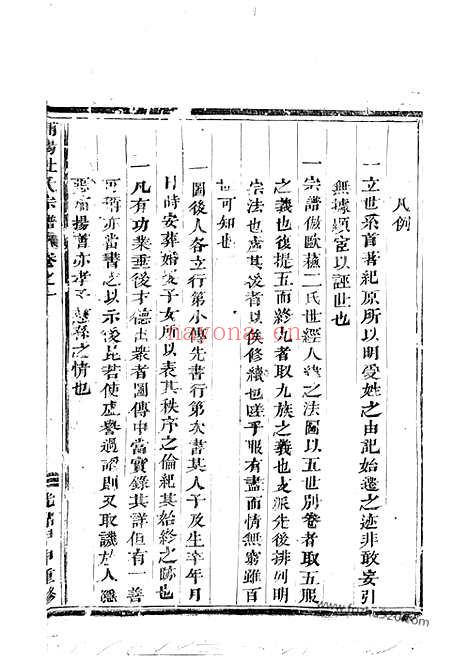 凡例
一立世系首著紀原所以明受姓之由記始遷之迹非敢妄引
無據顯宦以誣世也
一宗譜倣歐蘇二氏世經人緯之法圖以五世別卷者取五服
之義也復提五而終九者取九族之義也支派先後排列明
宗法也虛其後者以俟修續也嗟乎服有盡而情無窮雖百
世可知也
一圖後人各立行第小傳先書行第次書某人子及生卒年月
日時安葬婚娶子女所以表其秩序之倫紀其始終之跡也
一凡有功業垂後才德出衆者圖傳中當實錄其詳但有一善
可稱亦當書之以示後昆若使虛譽過 則又取譏於人
揚善亦孝子慈孫之情也
杜氏宗譜 卷之一
光緒甲申重修
nayona.cn